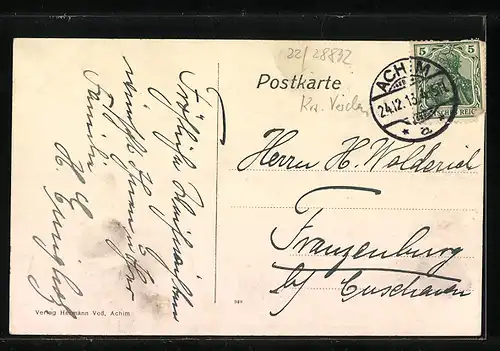 22/28832
Postkarte
Kr. Verden
5 5
DEUTSCHES REICH
ACHIM
24.12.13.
* a
Herrn H. Wolderich
Franzenburg
b/ Cuxhaven
Fröhliche Weihnachten
wünscht Ihnen
Familie
H.
Verlag Hermann Voß, Achim.